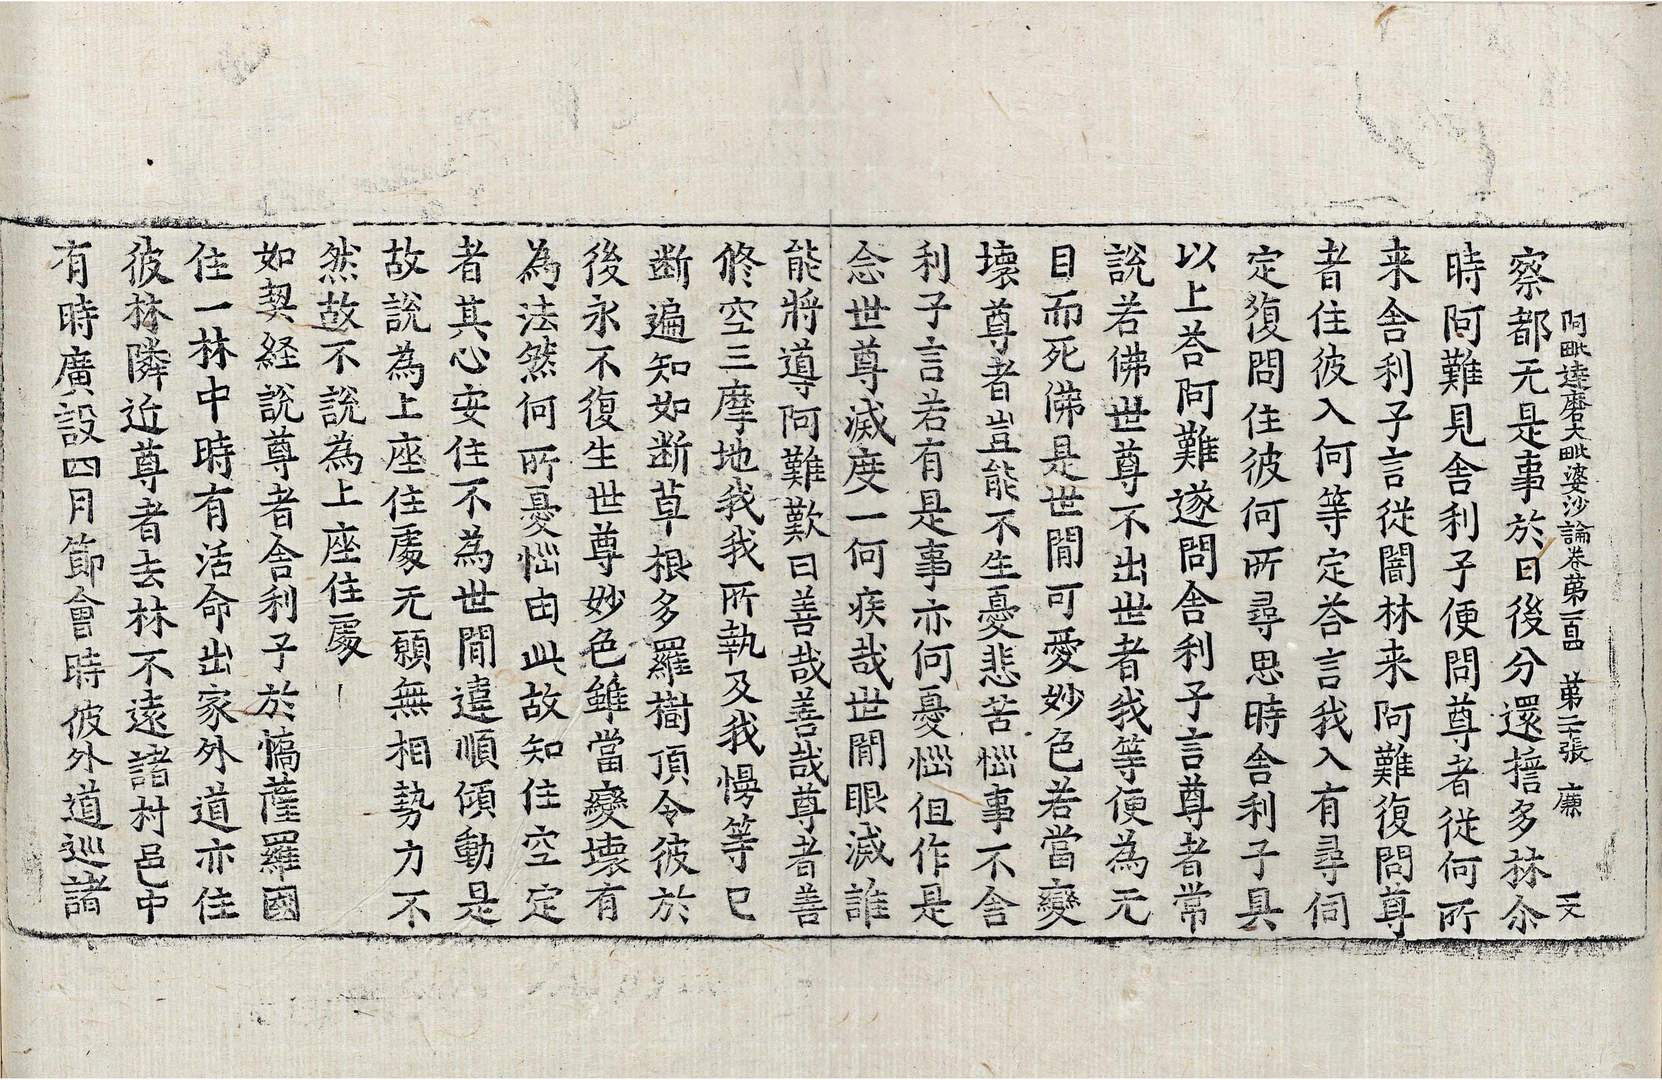 阿毗達磨大毗婆沙論卷苐一百四　苐二十張　廉　文
察都无是事於日後分還擔多林尒
時阿難見舍利子便問尊者從何所
来舍利子言從闇林来阿難復問尊
者住彼入何等定荅言我入有尋伺
定復問住彼何所尋思時舍利子具
以上荅阿難遂問舍利子言尊者常
說若佛世尊不出世者我等便為无
目而死佛是世間可愛妙色若當變
壞尊者豈能不生憂悲苦惱事不舍
利子言若有是事亦何憂惱但作是
念世尊滅度一何疾哉世間眼滅誰
能將導阿難歎曰善哉善哉尊者善
修空三摩地我我所執及我慢等已
斷遍知如斷草根多羅樹頂令彼於
後永不復生世尊妙色雖當變壞有
為法然何所憂惱由此故知住空定
者其心安住不為世間違順傾動是
故說為上座住處无願無相勢力不
然故不說為上座住處
如契経說尊者舍利子於憍薩羅國
住一林中時有活命出家外道亦住
彼林隣近尊者去林不遠諸村邑中
有時廣設四月節會時彼外道巡諸